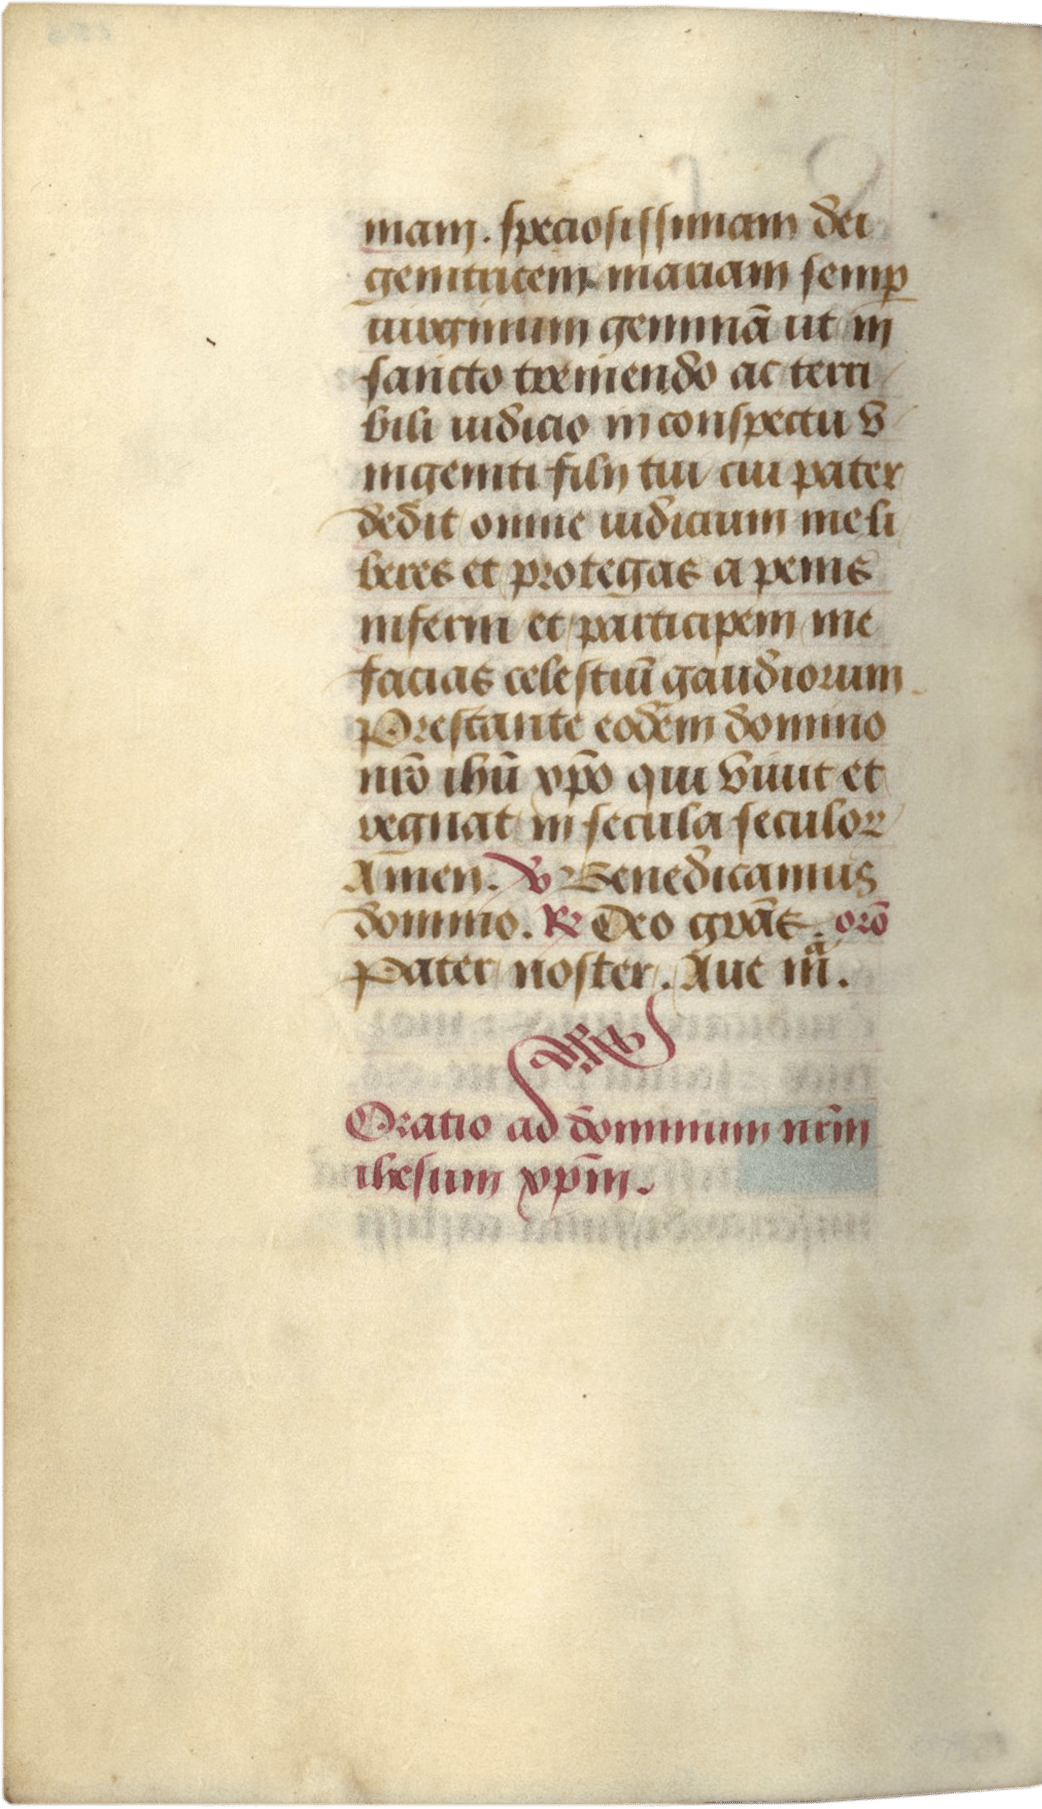 mam. speciosissimam dei
genitricem mariam semp
uirginum gemmā ut in
sancto tremendo ac terri
bili iudicio in conspectu v
nigeniti filij tui cui pater
dedit omne iudicium me li
beres et protegas a penis
inferni et participem me
facias celestiū gaudiorum
Prestante eodem domino
nrō ihū xp̄o qui viuit et
regnat in secula seculoꝝ
Amen. ℣ Benedicamus
domino. ℟ Deo grās. orō
Pater noster. Aue mͣ.
Oratio ad dominum nrm̄
ihesum xpm̄.